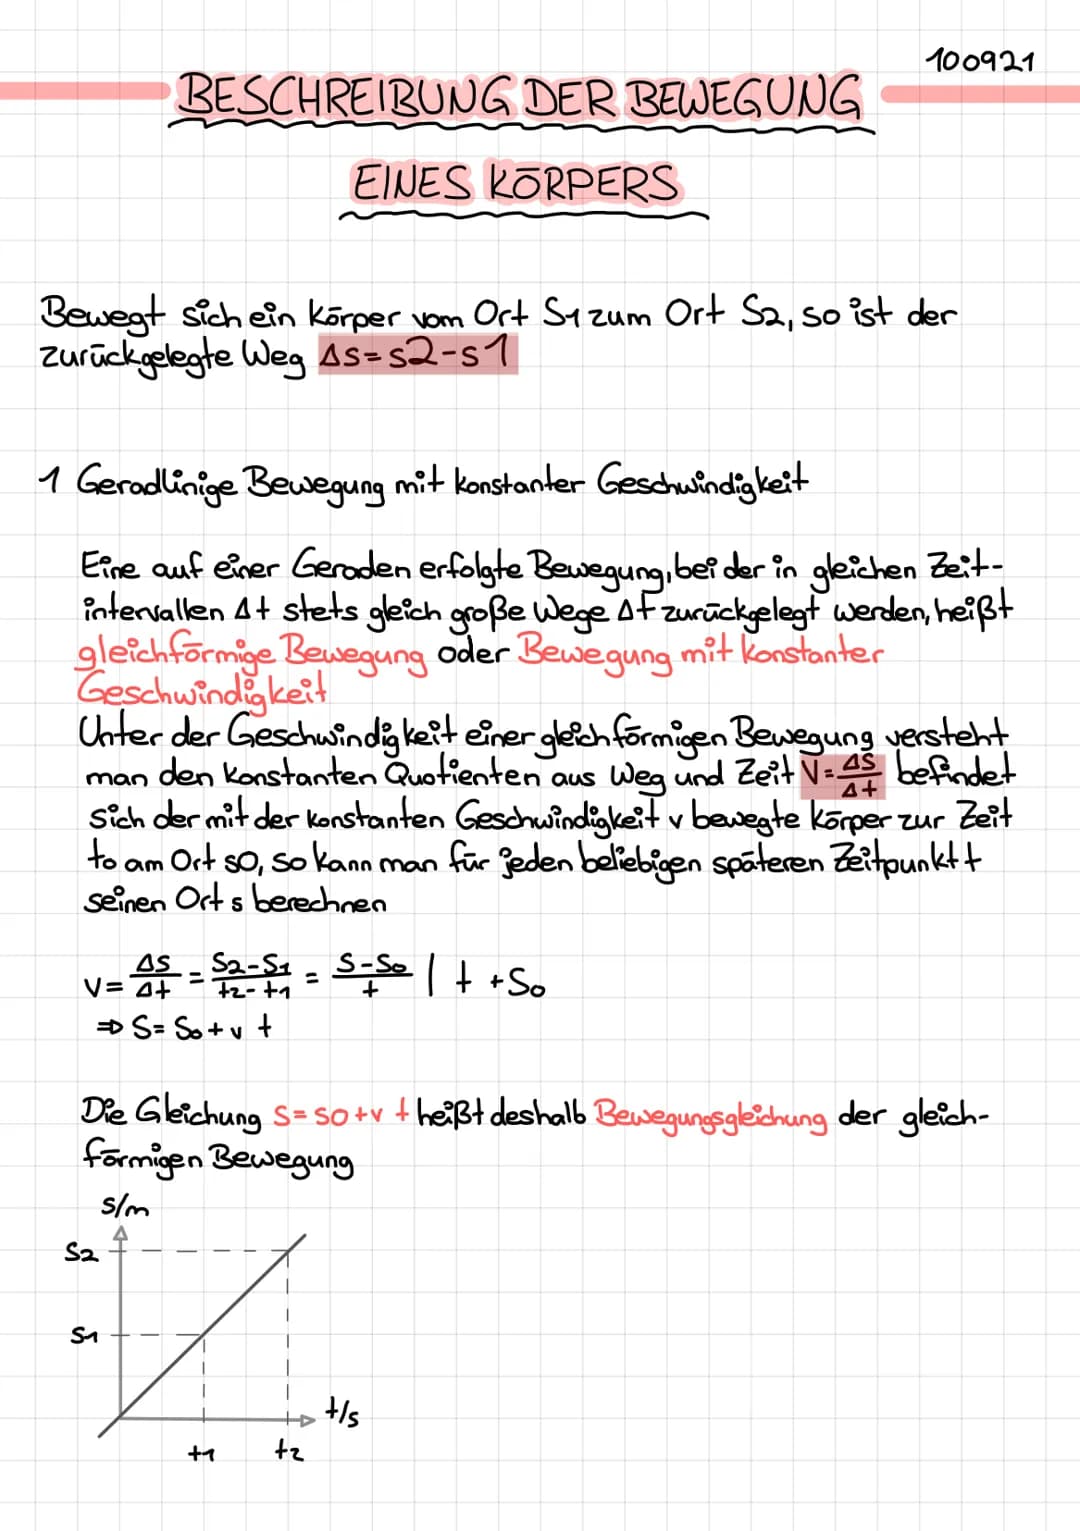 100921
BESCHREIBUNG DER BEWEGUNG
EINES KÖRPERS
Bewegt sich ein Körper vom Ort S1 zum Ort S2, so ist der
zurückgelegte Weg Δs=s2-s1
1 Geradlinige Bewegung mit konstanter Geschwindigkeit
Eine auf einer Geraden erfolgte Bewegung, bei der in gleichen Zeit-
intervallen Δt stets gleich große Wege Δt zurückgelegt werden, heißt
gleichförmige Bewegung oder Bewegung mit konstanter
Geschwindigkeit
Unter der Geschwindigkeit einer gleichförmigen Bewegung versteht
man den konstanten Quotienten aus Weg und Zeit V=Δs/Δt befindet
sich der mit der konstanten Geschwindigkeit v bewegte Körper zur Zeit
to am Ort so, so kann man für jeden beliebigen späteren Zeitpunkt t
seinen Ort s berechnen
V= Δs/Δt = S2-S1/t2-t1 = S-So/t | t +So
⇒ S= So+v t
Die Gleichung S=so+v t heißt deshalb Bewegungsgleichung der gleich-
förmigen Bewegung
s/m
S2
S1
t/s
t1 t2